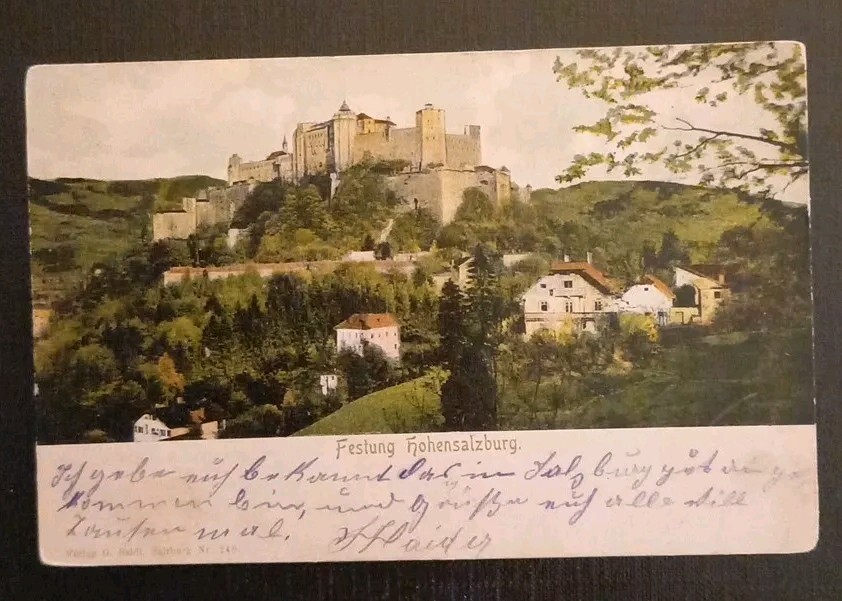 Festung Hohensalzburg.
Ich gebe euch bekannt das in Salzburg gut an ge
kommen bin, und grüße euch alle vill
Tausen mal. Haider
Verlag G. Baldi, Salzburg Nr.